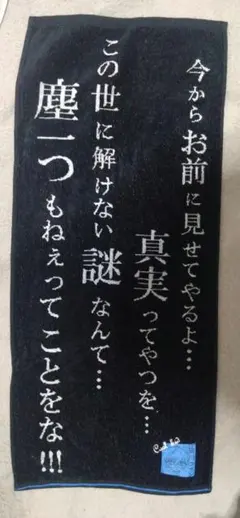 今からお前に見せてやるよ…
真実ってやつを…
この世に解けない謎なんて…
塵一つもねぇってことをな!!!